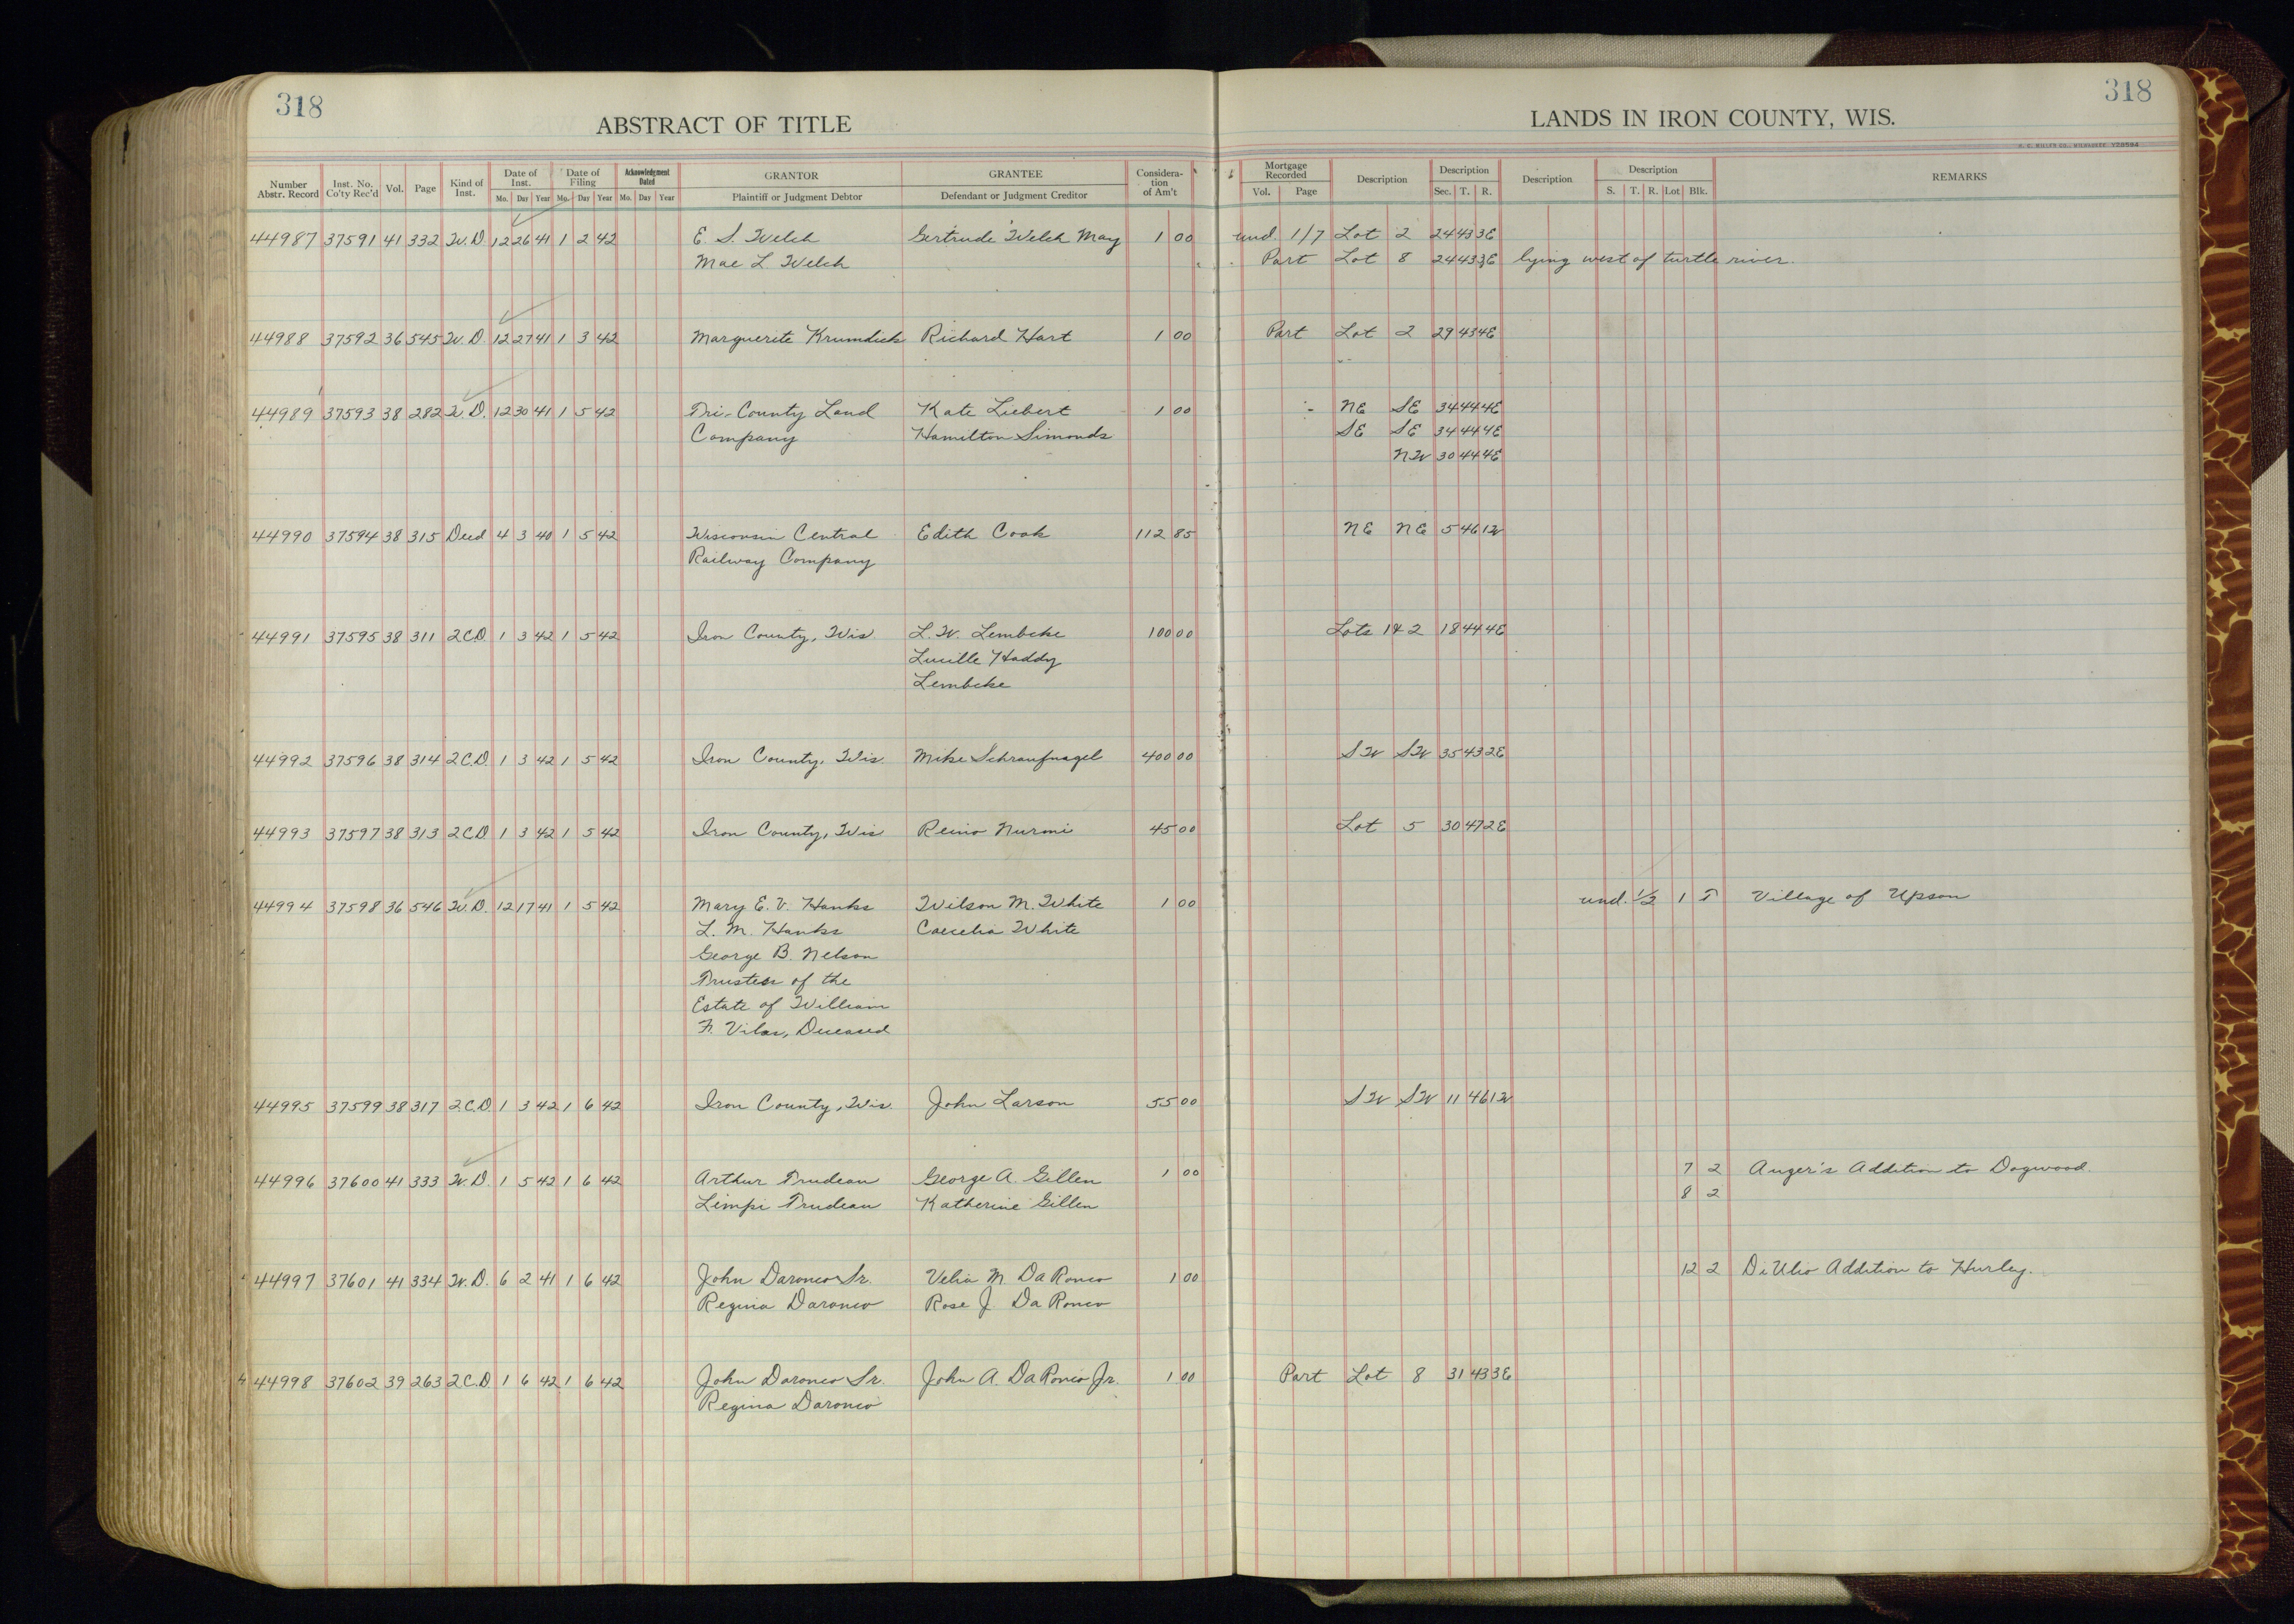 318
318
ABSTRACT OF TITLE
LANDS IN IRON COUNTY, WIS.
Number Abstr. Record Inst. No. Co'ty Rec'd Vol. Page Kind of Inst. Date of Inst. Mo. Day Year Date of Filing Mo. Day Year Acknowledgment Dated Mo. Day Year GRANTOR Plaintiff or Judgment Debtor GRANTEE Defendant or Judgment Creditor Considera-tion of Am't Mortgage Recorded Vol. Page Description Description Sec. T. R. Description Description S. T. R. Lot Blk. REMARKS
44987 37591 41 332 W.D. 12 26 41 1 2 42 E. S. Welch Gertrude Welch May 1 00 und. 1/7 Lot 2 24 43 3E
Mae L. Welch Part Lot 8 24 43 3E lying west of turtle river.
44988 37592 36 545 W.D. 12 27 41 1 3 42 Marguerite Krumdick Richard Hart 1 00 Part Lot 2 29 43 4E
44989 37593 38 282 W.D. 12 30 41 1 5 42 Tri-County Land Kate Liebert 1 00 NE SE 34 44 4E
Company Hamilton Simonds SE SE 34 44 4E
NW 30 44 4E
44990 37594 38 315 Deed 4 3 40 1 5 42 Wisconsin Central Edith Cook 112 85 NE NE 5 46 1W
Railway Company
44991 37595 38 311 2.C.D. 1 3 42 1 5 42 Iron County, Wis. L. W. Lembcke 100 00 Lots 1 & 2 18 44 4E
Lucille Haddy
Lembcke
44992 37596 38 314 2.C.D. 1 3 42 1 5 42 Iron County, Wis. Mike Schraufnagel 400 00 SW SW 35 43 2E
44993 37597 38 313 2.C.D. 1 3 42 1 5 42 Iron County, Wis Reino Nurmi 45 00 Lot 5 30 47 2E
44994 37598 36 546 W.D. 12 17 41 1 5 42 Mary E. V. Hanks Wilson M. White 1 00 und. 1/2 1 T Village of Upson
L. M. Hanks Caecelia White
George B. Nelson
Trustees of the
Estate of William
F. Vilas, Deceased
44995 37599 38 317 2.C.D. 1 3 42 1 6 42 Iron County, Wis. John Larson 55 00 SW SW 11 46 1W
44996 37600 41 333 W.D. 1 5 42 1 6 42 Arthur Trudeau George A. Gillen 1 00 7 2 Auger's Addition to Dogwood.
Limpi Trudeau Katherine Gillen 8 2
44997 37601 41 334 W.D. 6 2 41 1 6 42 John Daronco Sr. Velia M. DaRonco 1 00 12 2 DiUlio Addition to Hurley.
Regina Daronco Rose J. DaRonco
44998 37602 39 263 2.C.D 1 6 42 1 6 42 John Daronco Sr. John A. DaRonco Jr. 1 00 Part Lot 8 31 43 3E
Regina Daronco